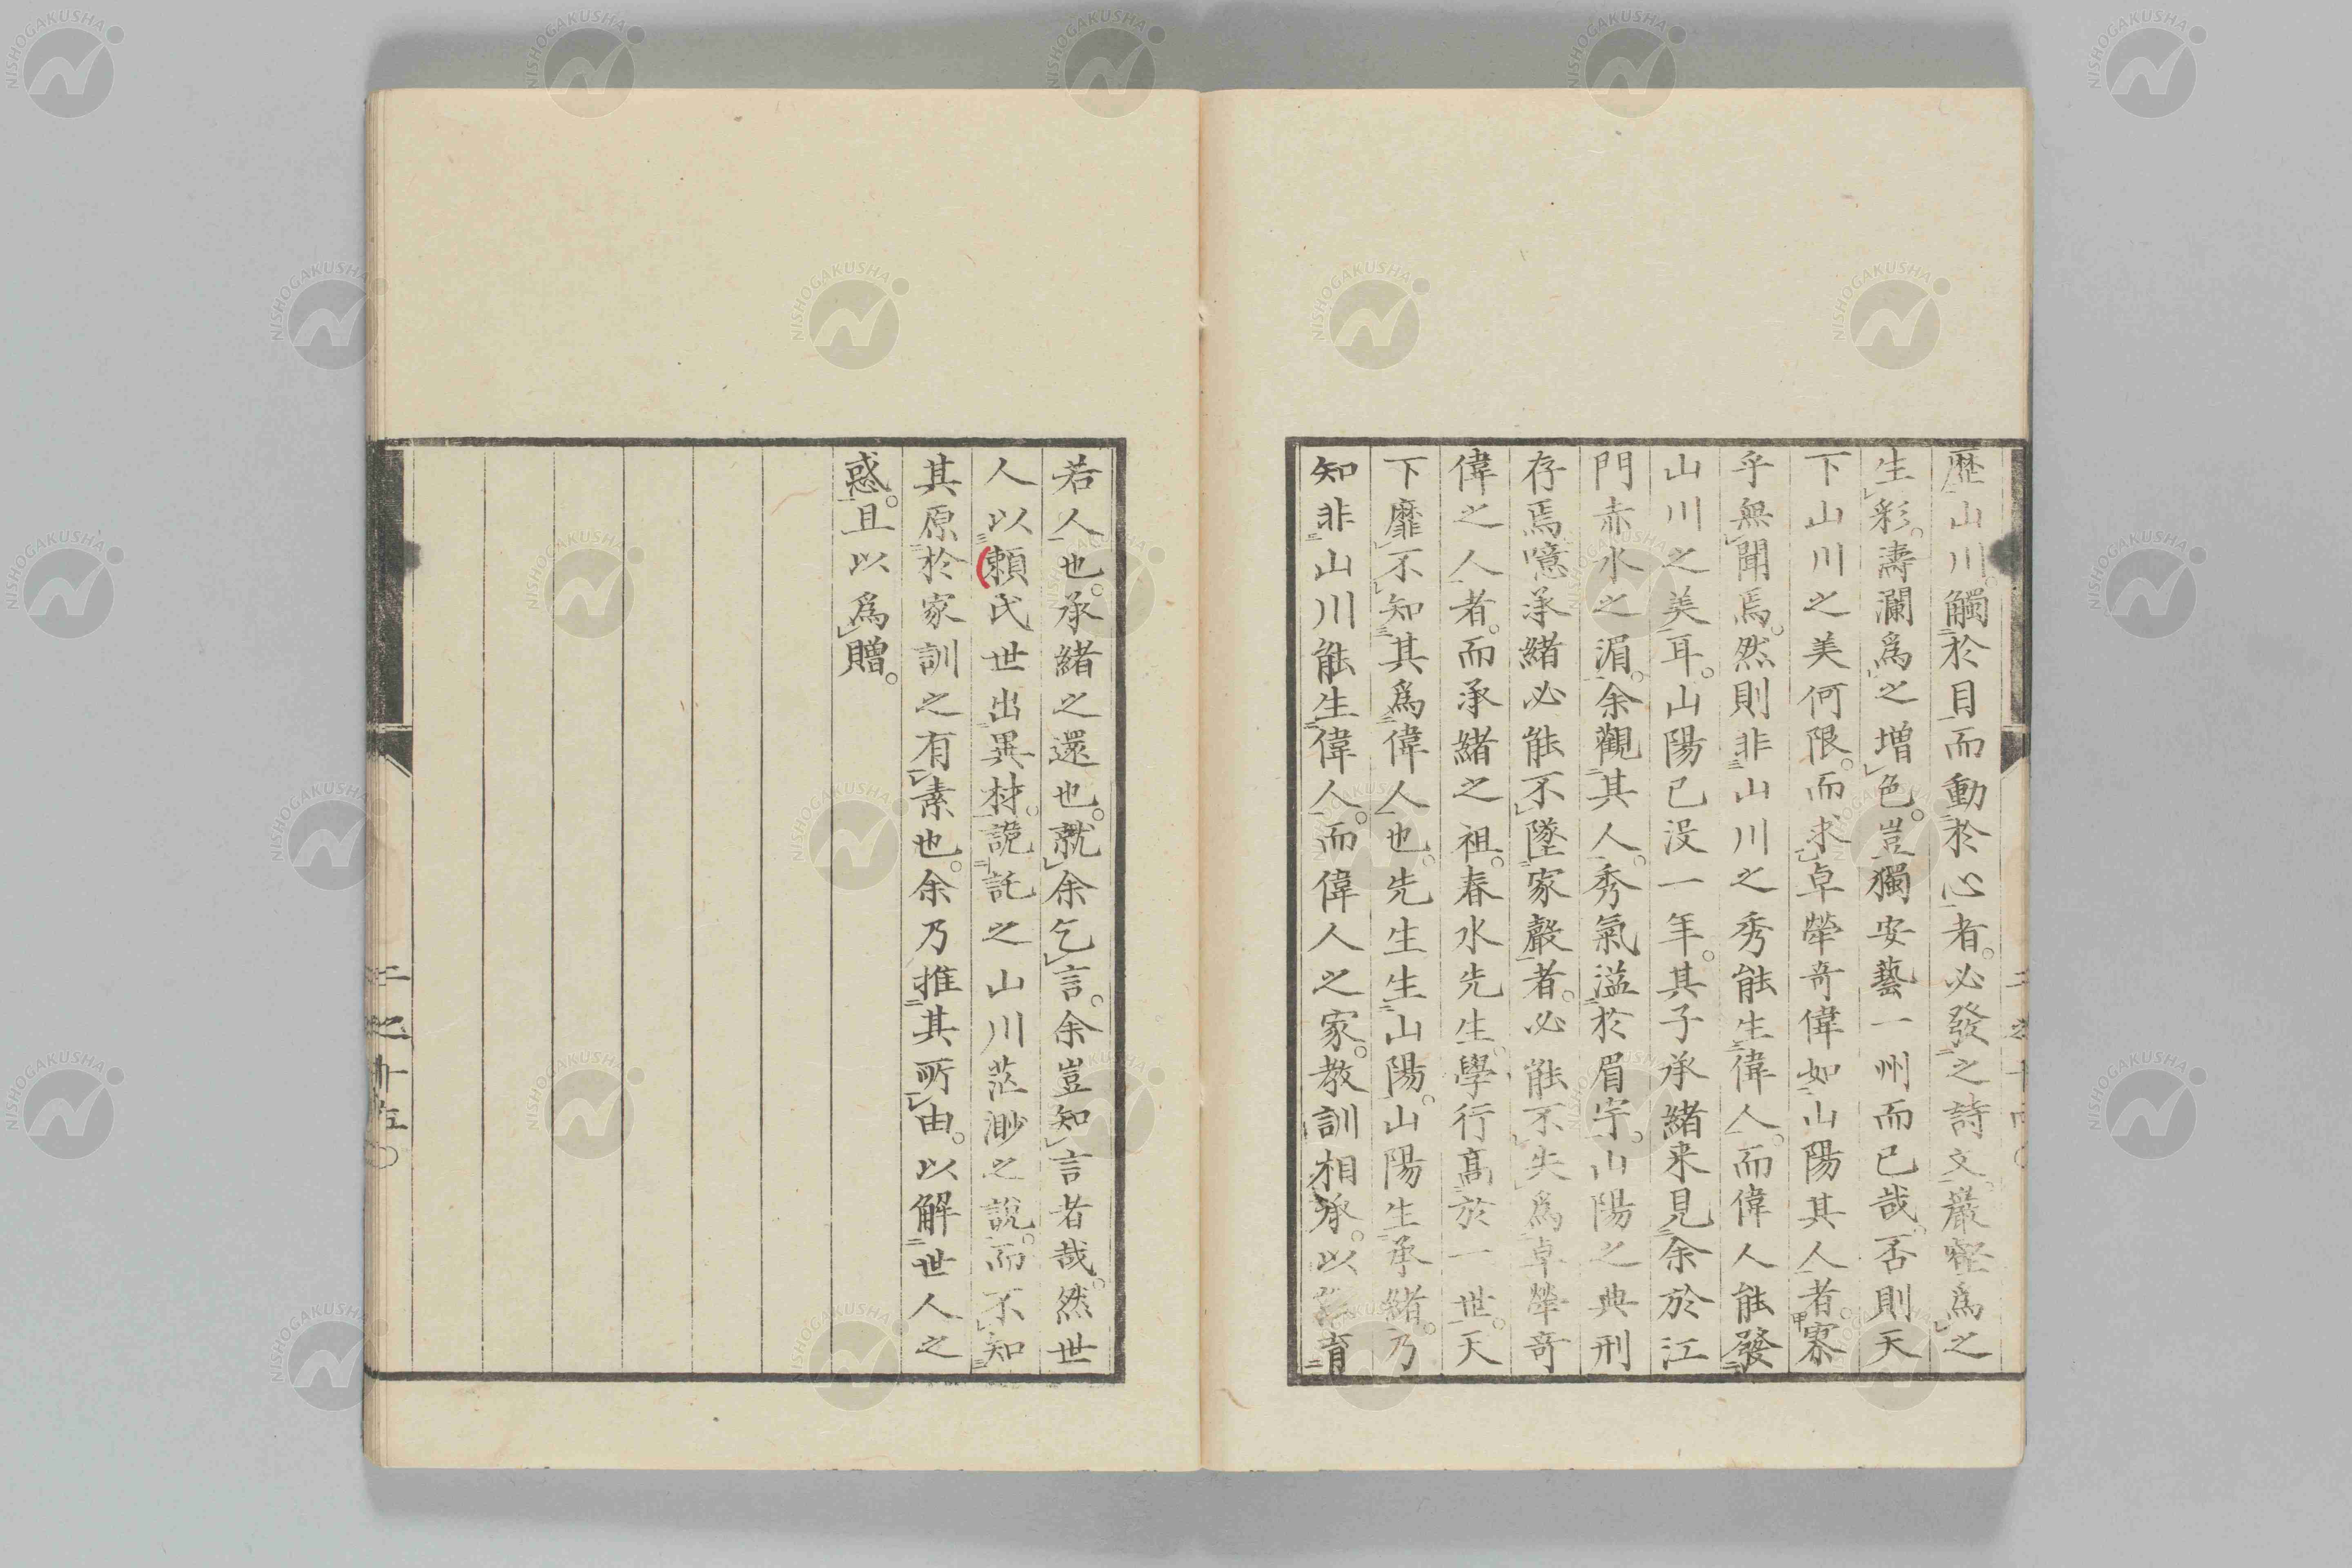 歴山川。觸於目而動於心者。必發之詩文。巖壑爲之
生彩。濤瀾爲之增色。豈獨安藝一州而已哉。否則天
下山川之美何限。而求卓犖奇偉如山陽其人者。寥
乎無聞焉。然則非山川之秀能生偉人。而偉人能發
山川之美耳。山陽已没一年。其子承緒来見余於江
門赤水之湄。余觀其人。秀氣溢於眉宇。山陽之典刑
存焉。噫承緒必能不墜家聲者。必能不失爲卓犖奇
偉之人者。而承緒之祖。春水先生。學行高於一世。天
下靡不知其爲偉人也。先生生山陽。山陽生承緒。乃
知非山川能生偉人。而偉人之家。教訓相承。以育
若人也。承緒之還也。就余乞言。余豈知言者哉。然世
人以頼氏世出異材。諉託之山川茫渺之説。而不知
其原於家訓之有素也。余乃推其所由。以解世人之
惑。且以爲贈。
二之十五
NISHOGAKUSHA